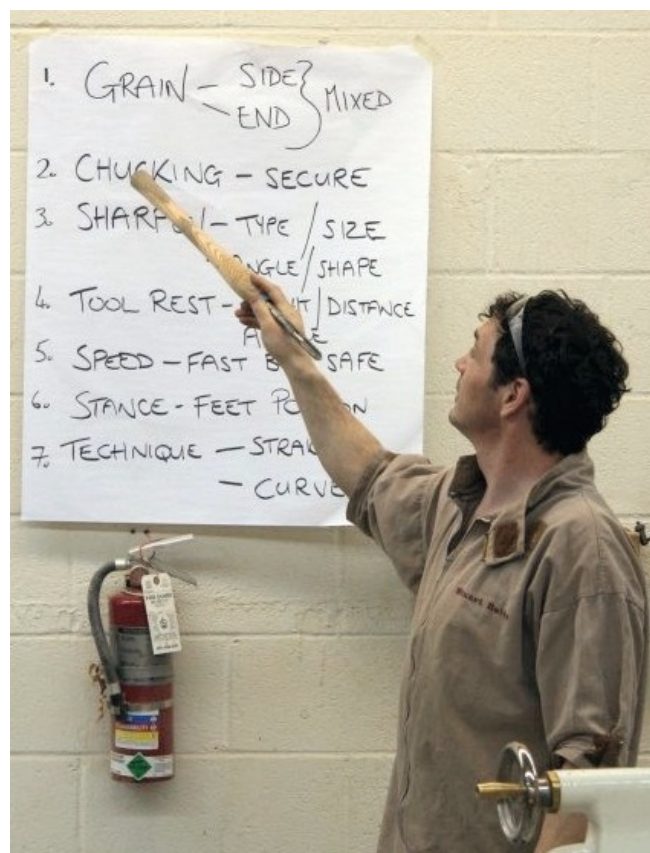 1. GRAIN - SIDE
- END } MIXED
2. CHUCKING - SECURE
3. - TYPE / SIZE
ANGLE / SHAPE
4. TOOL REST - / DISTANCE
5. SPEED - FAST SAFE
6. STANCE - FEET
7. TECHNIQUE -
- CURVE